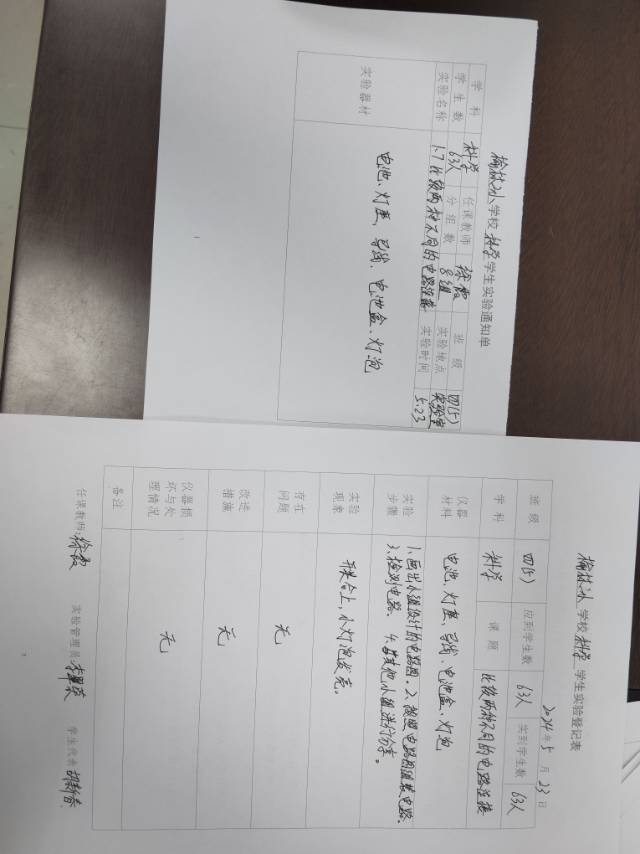 学校科学学生实验通知单
学科 科学 任课教师 徐霞 班级 四(5)
学生数 63人 分组数 8组 实验地点 实验室
实验名称 1.7比较两种不同的电路连接 实验时间 5.23
实验器材 电池、灯座、导线、电池盒、灯泡
学校科学学生实验登记表
2024年5月23日
班级 四(5) 应到学生数 63人 实到学生数 63人
学科 科学 课题 比较两种不同的电路连接
仪器材料 电池、灯座、导线、电池盒、灯泡
实验步骤 1.画出小组设计的电路图。2.按照电路图连接电路.
3.检测电路. 4.与其他小组进行分享。
实验现象 开关合上,小灯泡发亮。
存在问题 无
改进措施 无
仪器损坏与处理情况 无
备注
任课教师:徐霞 实验管理员 学生代表